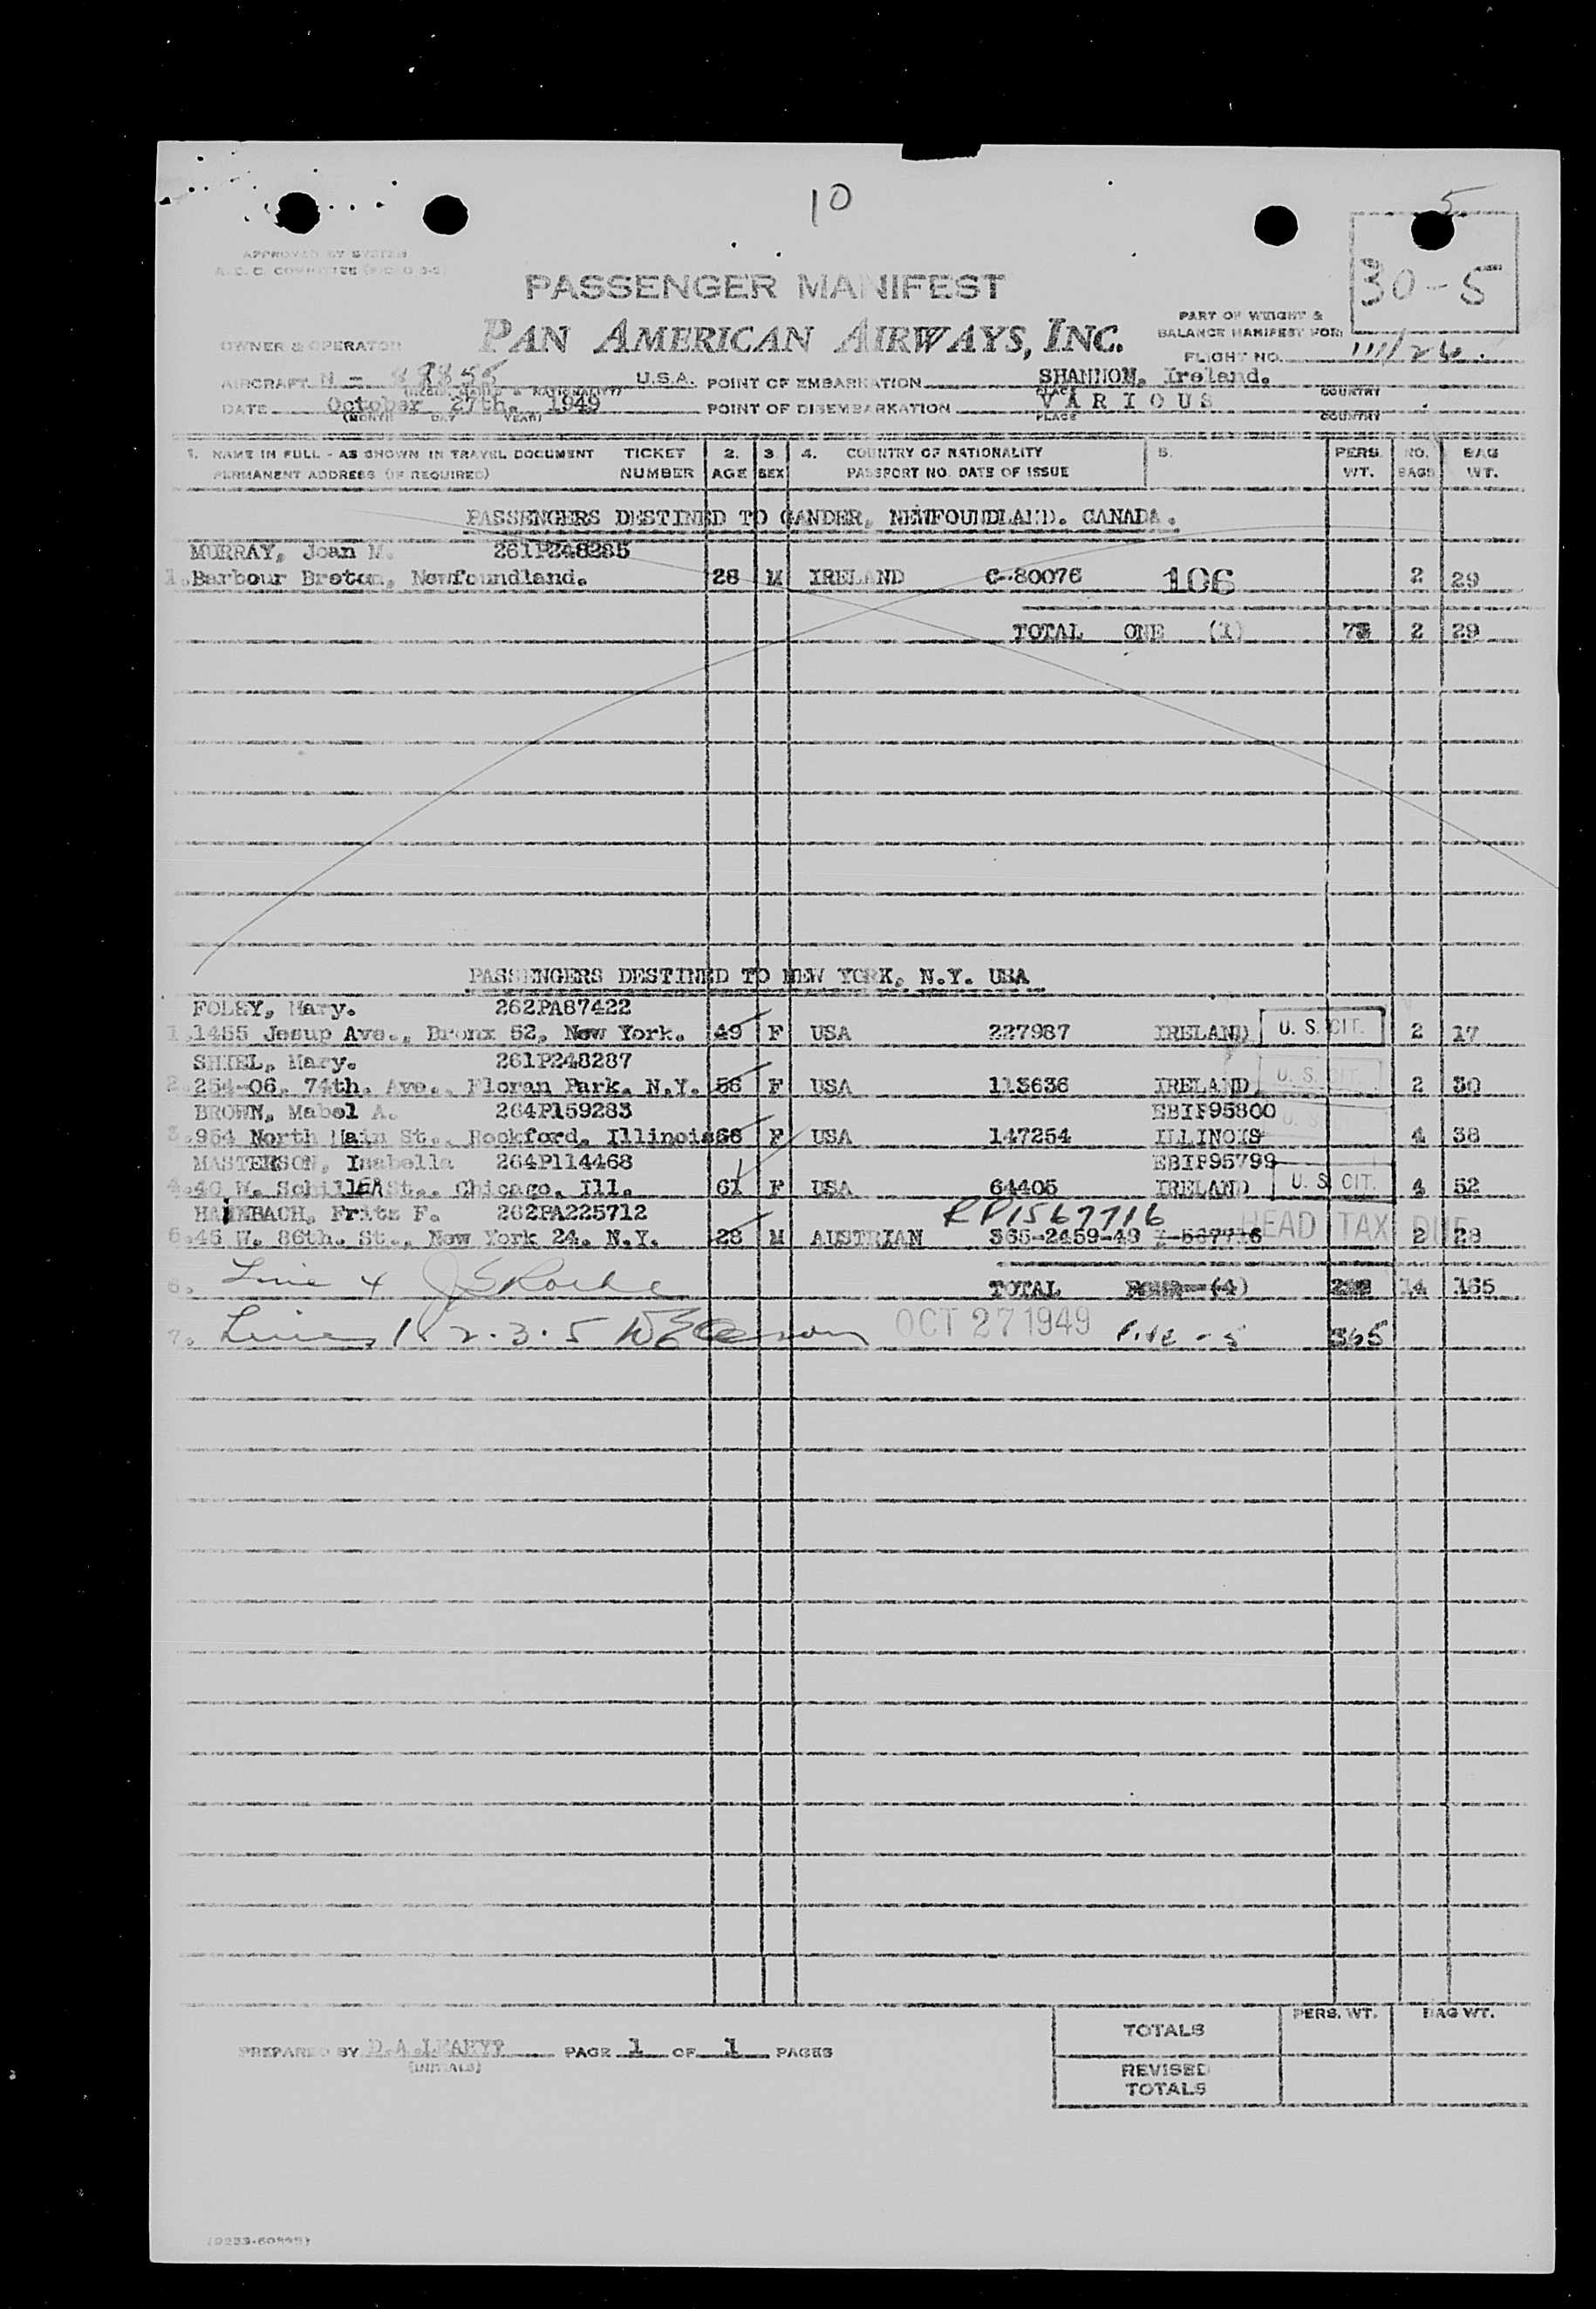 10
5
APPROVED BY SYSTEM
30-5
PASSENGER MANIFEST
PART OF WEIGHT &
BALANCE MANIFEST FOR:
OWNER & OPERATOR PAN AMERICAN AIRWAYS, INC.
FLIGHT NO. 111/26.
AIRCRAFT N - U.S.A. POINT OF EMBARKATION SHANNON, Ireland.
PLACE COUNTRY
DATE October 27th. 1949 POINT OF DISEMBARKATION VARIOUS
(MONTH DAY YEAR) PLACE COUNTRY
1. NAME IN FULL - AS SHOWN IN TRAVEL DOCUMENT TICKET 2. 3. 4. COUNTRY OF NATIONALITY 5. PERS. NO. BAG
PERMANENT ADDRESS (IF REQUIRED) NUMBER AGE SEX PASSPORT NO. DATE OF ISSUE WT. BAGS WT.
PASSENGERS DESTINED TO GANDER, NEWFOUNDLAND. CANADA.
MURRAY, Joan M. 261P248285
1. Barbour Breton, Newfoundland. 28 M IRELAND C-80076 106 2 29
TOTAL ONE (1) 73 2 29
PASSENGERS DESTINED TO NEW YORK, N.Y. USA
FOLEY, Mary. 262PA87422
1. 1455 Jesup Ave., Bronx 52, New York. 49 F USA 227987 IRELAND U. S. CIT. 2 17
SHIEL, Mary. 261P248287
2. 254-06. 74th. Ave.. Floran Park. N.Y. 56 F USA 113636 IRELAND U. S. CIT. 2 30
BROWN, Mabel A. 264P159283 EBIF95800
3. 954 North Main St.. Rockford. Illinois 66 F USA 147254 ILLINOIS U. S. 4 38
MASTERSON, Isabella 264P114468 EBIF95799
4. 40 W. Schiller St.. Chicago. Ill. 61 F USA 64405 IRELAND U. S. CIT. 4 52
HAINBACH, Fritz F. 262PA225712 RP1567716
5. 45 W. 86th. St., New York 24. N.Y. 28 M AUSTRIAN 365-2459-49 I-567716 HEAD TAX DUE 2 28
6. Line 4 TOTAL FOUR (4) 14 165
7. Lines 1 & 2 . 3 . 5 OCT 27 1949 Five - 5 365
TOTALS PERS. WT. BAG WT.
PREPARED BY D.A.LEAHY PAGE 1 OF 1 PAGES
(INITIALS)
REVISED
TOTALS